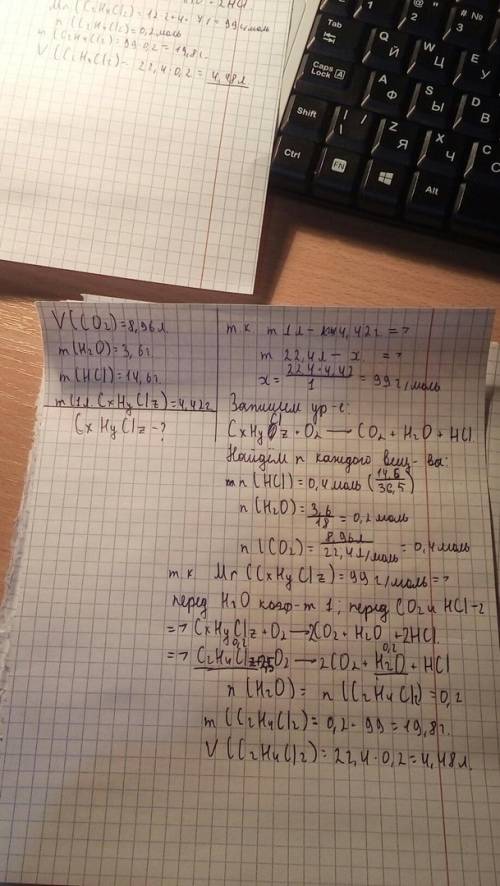 Mr(C₂H₄Cl₂) = 12·2+4+71 = 99 г/моль
n(C₂H₄Cl₂) = 0,2 моль
m(C₂H₄Cl₂) = 99·0,2 = 19,8 г.
V(C₂H₄Cl₂) - 22,4·0,2 = 4,48 л
Tab
Caps Lock A
Shift
Ctrl
FN
Alt
Q Й
W Ц
E У
A Ф
S Ы
D В
Z Я
X Ч
C С
@ 2
# № 3
V(CO₂) = 8,96 л
m(H₂O) = 3,6 г.
m(HCl) = 14,6 г.
m(1л CxHyClz) = 4,42 г
CxHyClz - ?
т.к. m 1л - 4,42 г =>
m 22,4 л - x =>
x = 22,4·4,42 / 1 = 99 г/моль
Запишем ур-е:
CxHyClz + O₂ → CO₂ + H₂O + HCl
Найдём n каждого вещ-ва:
n(HCl) = 0,4 моль (14,6 / 36,5)
n(H₂O) = 3,6 / 18 = 0,2 моль
n(CO₂) = 8,96 л / 22,4 л/моль = 0,4 моль
т.к. Mr(CxHyClz) = 99 г/моль =>
перед H₂O коэф-т 1; перед CO₂ и HCl - 2
=> CxHyClz + O₂ → 2CO₂ + H₂O + 2HCl
0,2 0,2
=> C₂H₄Cl₂ + 2,5O₂ → 2CO₂ + H₂O + HCl
n(H₂O) = n(C₂H₄Cl₂) = 0,2
m(C₂H₄Cl₂) = 0,2·99 = 19,8 г.
V(C₂H₄Cl₂) = 22,4·0,2 = 4,48 л.